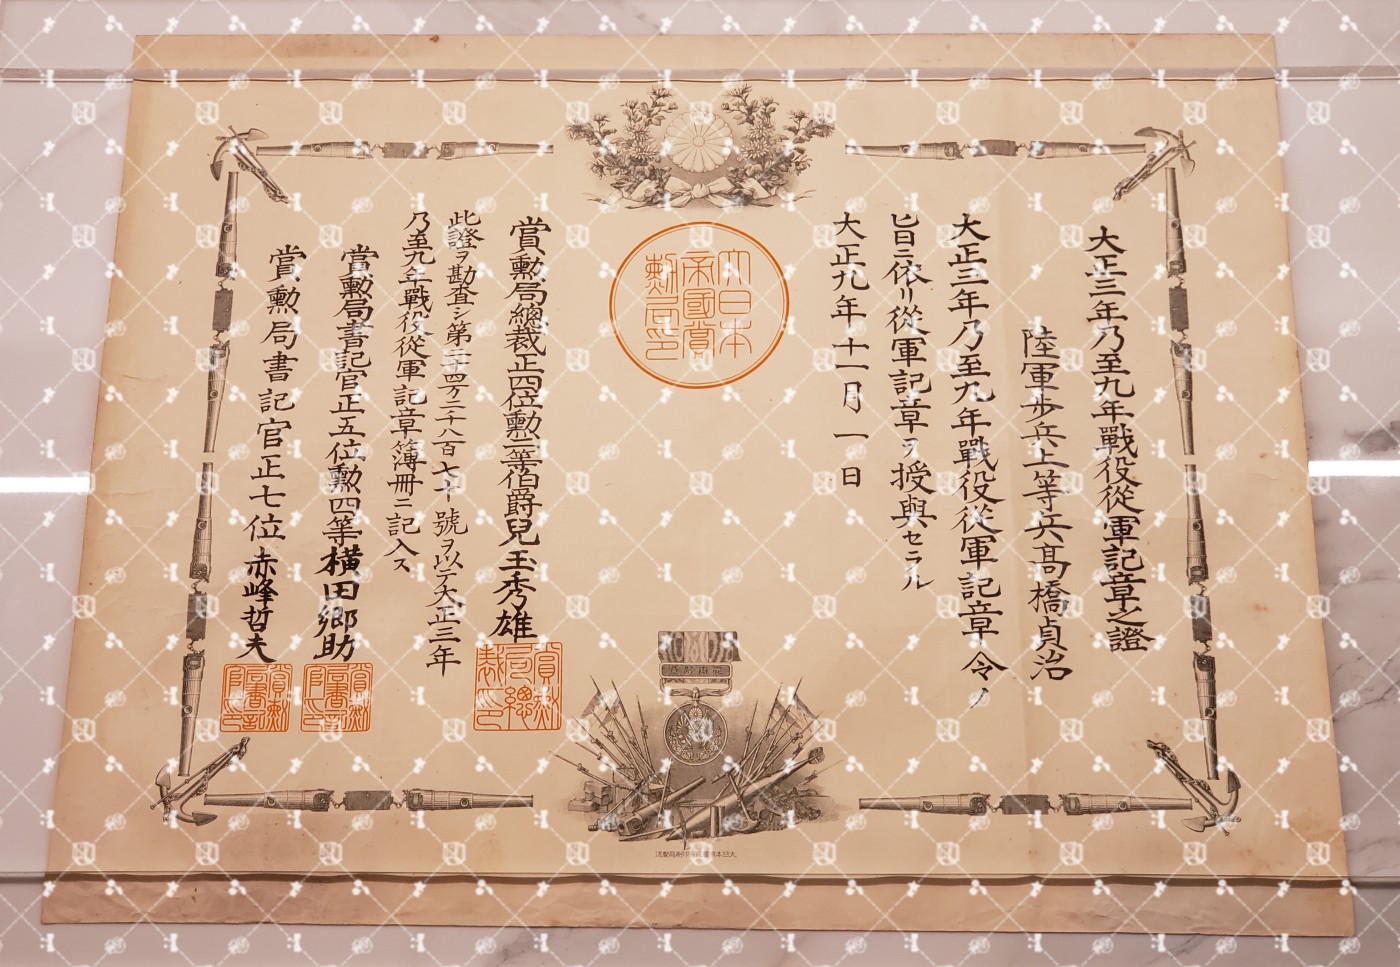 大正三年乃至九年戰役從軍記章之證
陸軍歩兵上等兵髙橋貞治
大正三年乃至九年戰役從軍記章令ノ
旨ニ依リ從軍記章ヲ授與セラル
大正九年十一月一日
大日本
帝國賞
勲局印
賞勲局總裁正四位勲二等伯爵兒玉秀雄
賞勲
局總
裁印
此證ヲ勘査シ第二十四万二千八百七十號ヲ以テ大正三年
乃至九年戰役從軍記章簿冊ニ記入ス
賞勲局書記官正五位勲四等横田郷助
賞勲
局書記
官印
賞勲局書記官正七位赤峰哲夫
賞勲
局書記
官印